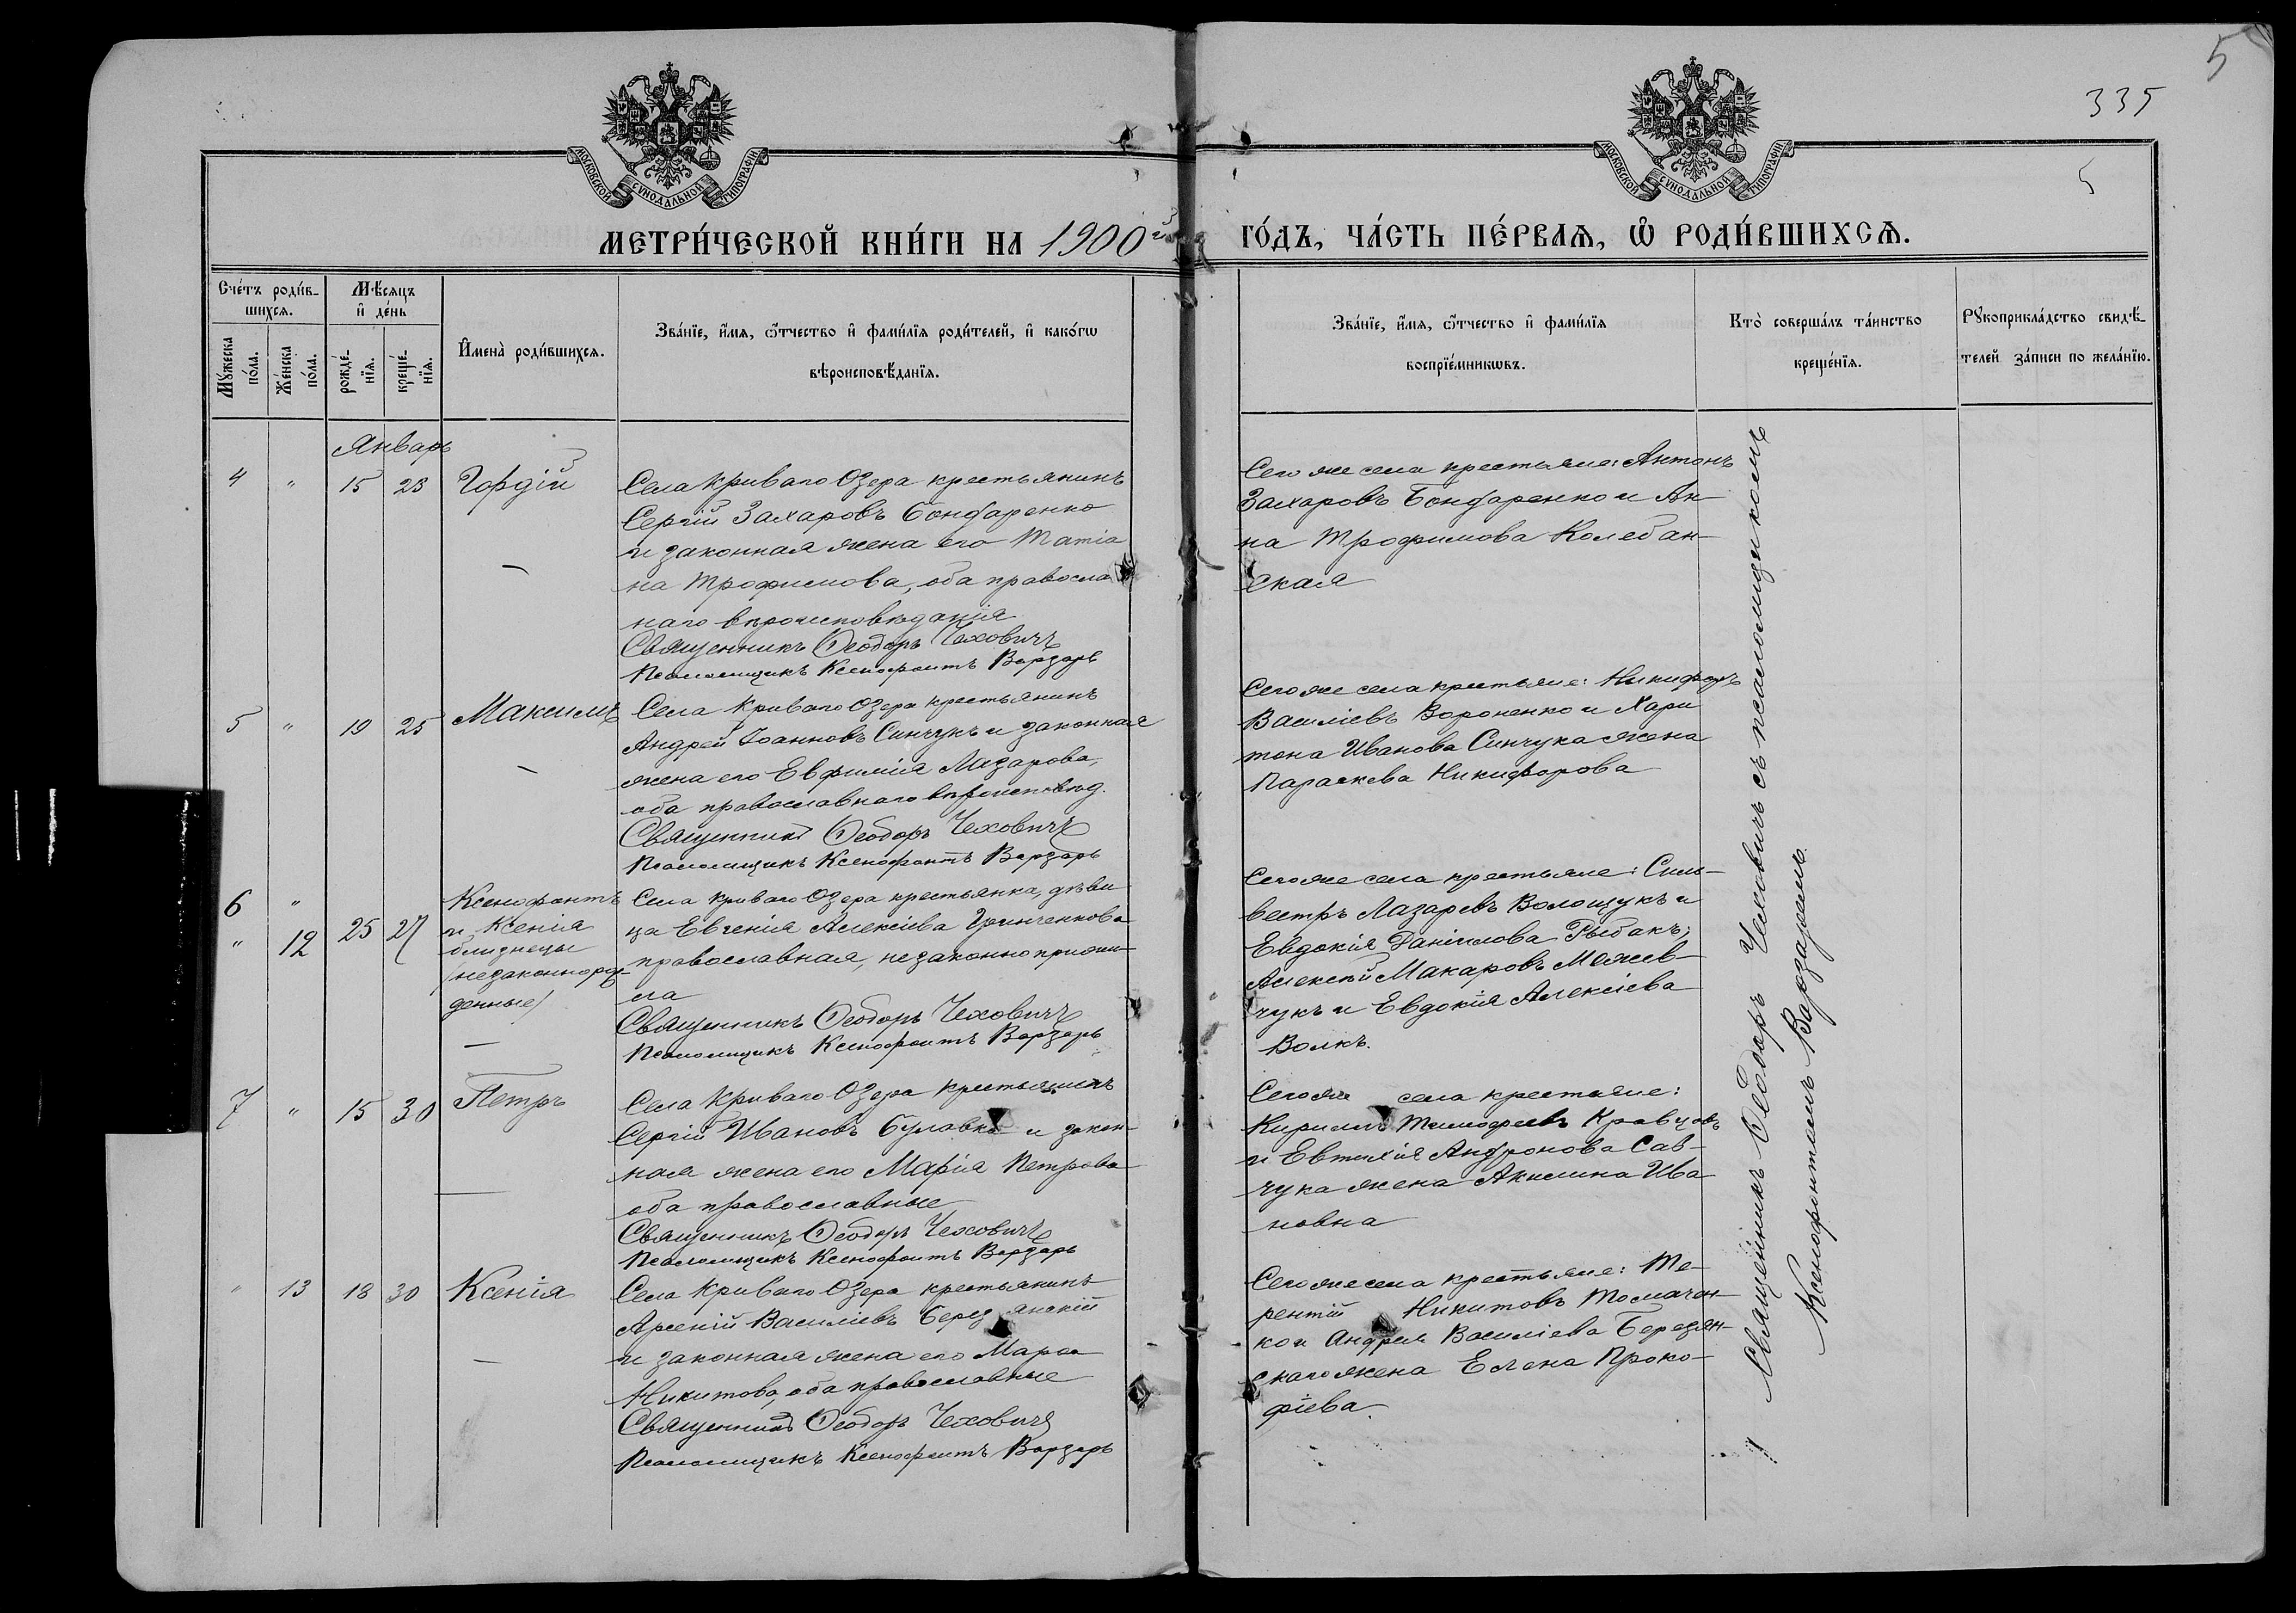 5
335
5
МОСКОВСКОЙ СѴНОДАЛЬНОЙ ТИПОГРАФІИ
МОСКОВСКОЙ СѴНОДАЛЬНОЙ ТИПОГРАФІИ
МЕТРИ́ЧЕСКОЙ КНИ́ГИ НА 1900й
ГО́ДЪ, ЧА́СТЬ ПЕ́РВАѦ, Ѡ҆ РОДИ́ВШИХСѦ.
Сче́тъ роди́в-
шихсѧ.
Мꙋ́жеска по́ла.
Же́нска по́ла.
Мѣ́сѧцъ
и҆ де́нь
рожде́-нїѧ.
креще́-нїѧ.
И҆мена̀ роди́вшихсѧ.
Зва́нїе, и҆́мѧ, ѻ҆́тчество и҆ фами́лїѧ роди́телей, и҆ како́гѡ
вѣроисповѣ́данїѧ.
Зва́нїе, и҆́мѧ, ѻ҆́тчество и҆ фами́лїѧ
воспрїе́мникѡвъ.
Кто̀ соверша́лъ та́инство
креще́нїѧ.
Рꙋкоприкла́дство свидѣ́-
телей за́писи по жела́нїю.
Январь
4 " 15 23 Гордій
Села Криваго Озера крестьянинъ
Сергій Захаровъ Бондаренко
и законная жена его Татіа
на Трофимова, оба правосла
наго вѣроисповѣданія
Священникъ Ѳеодоръ Чеховичъ
Псаломщикъ Ксенофонтъ Варзарь
Сего же села крестьяне: Антонъ
Захаровъ Бондаренко и Ан-
на Трофимова Колебан-
ская
5 " 19 25 Максимъ
Села Криваго Озера крестьянинъ
Андрей Іоанновъ Синчукъ и законная
жена его Евфимія Лазарова,
оба православнаго вѣроисповѣд.
Священникъ Ѳеодоръ Чеховичъ
Псаломщикъ Ксенофонтъ Варзарь
Сего же села крестьяне: Никифоръ
Василіевъ Вороненко и Хари
тона Иванова Синчука жена
Параскева Никифорова
6 "
" 12 25 27 Ксенофонтъ
и Ксенія
близнецы
(незаконнорож-
денные)
Села Криваго Озера крестьянка, дѣви
ца Евгенія Алексіева Гринченкова
православная, незаконно прижи-
ла
Священникъ Ѳеодоръ Чеховичъ
Псаломщикъ Ксенофонтъ Варзарь
Сего же села крестьяне: Силь-
вестръ Лазаревъ Волощукъ и
Евдокія Даніилова Рыбакъ;
Алексій Макаровъ Можев-
чукъ и Евдокія Алексіева
Волкъ.
7 " 15 30 Петръ
Села Криваго Озера крестьянинъ
Сергій Ивановъ Булавка и закон-
ная жена его Марія Петрова
оба православные
Священникъ Ѳеодоръ Чеховичъ
Псаломщикъ Ксенофонтъ Варзарь
Сего же села крестьяне:
Кириллъ Тимофеевъ Кравцовъ
и Евтихія Андронова Сав-
чука жена Акилина Ива
новна
" 13 18 30 Ксенія
Села Криваго Озера крестьянинъ
Арсеній Василіевъ Березянскій
и законная жена его Марѳа
Никитова, оба православные
Священникъ Ѳеодоръ Чеховичъ
Псаломщикъ Ксенофонтъ Варзарь
Сего же села крестьяне: Те-
рентій Никитовъ Толмачен-
ко и Андрея Василіева Березян-
скаго жена Елена Проко-
фіева.
Священникъ Ѳеодоръ Чеховичъ съ псаломщикомъ
Ксенофонтомъ Варзаремъ.